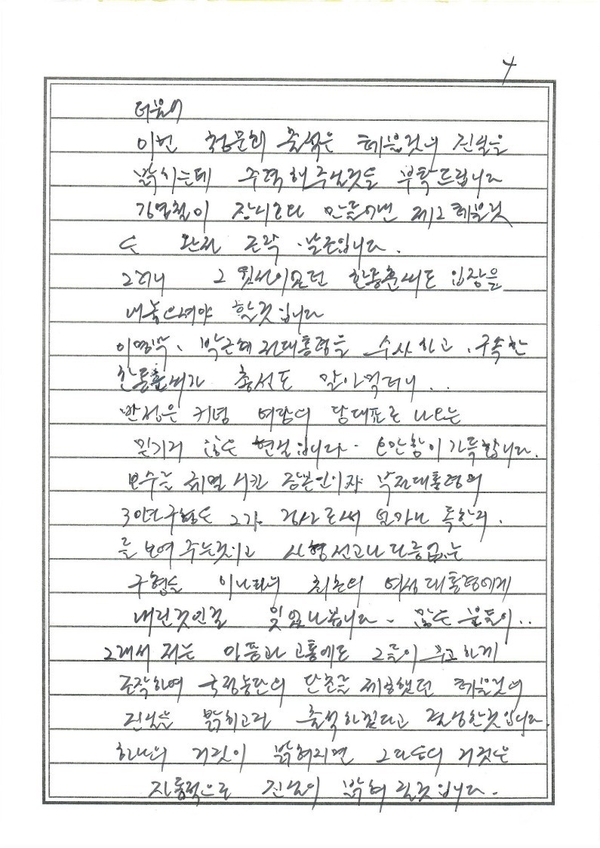 4
더불어
이번 청문회 출석은 태블릿의 진실을
밝히는데 주력해주실것을 부탁드립니다
김영철이 장시호와 만들어낸 제2 태블릿
도 완전 조작 날조입니다.
그러니 그 윗선이었던 한동훈씨도 입장을
내놓으셔야 할것입니다
이명박, 박근혜 전대통령을 수사하고, 구속한
한동훈씨가 총선도 말아먹더니..
반성은 커녕 여당의 당대표로 나오는
믿기지 않는 현실입니다. 안함이 가득합니다.
보수를 궤멸 시킨 장본인이자 박전대통령의
30년구형도 그가 검사로써 얼마나 독한지.
를 보여 주는것이고 사형선고나 다름없는
구형을 이나라의 최초의 여성대통령에게
내린것인걸 잊었나봅니다. 많은 분들이..
그래서 저는 아픔과 고통에도 그들이 하게
조작하여 국정농단의 단초를 제공했던 태블릿의
진실을 밝히고자 출석하겠다고 결심한것입니다.
하나의 거짓이 밝혀지면 그 다음의 거짓은
자동적으로 진실이 밝혀 질것입니다.